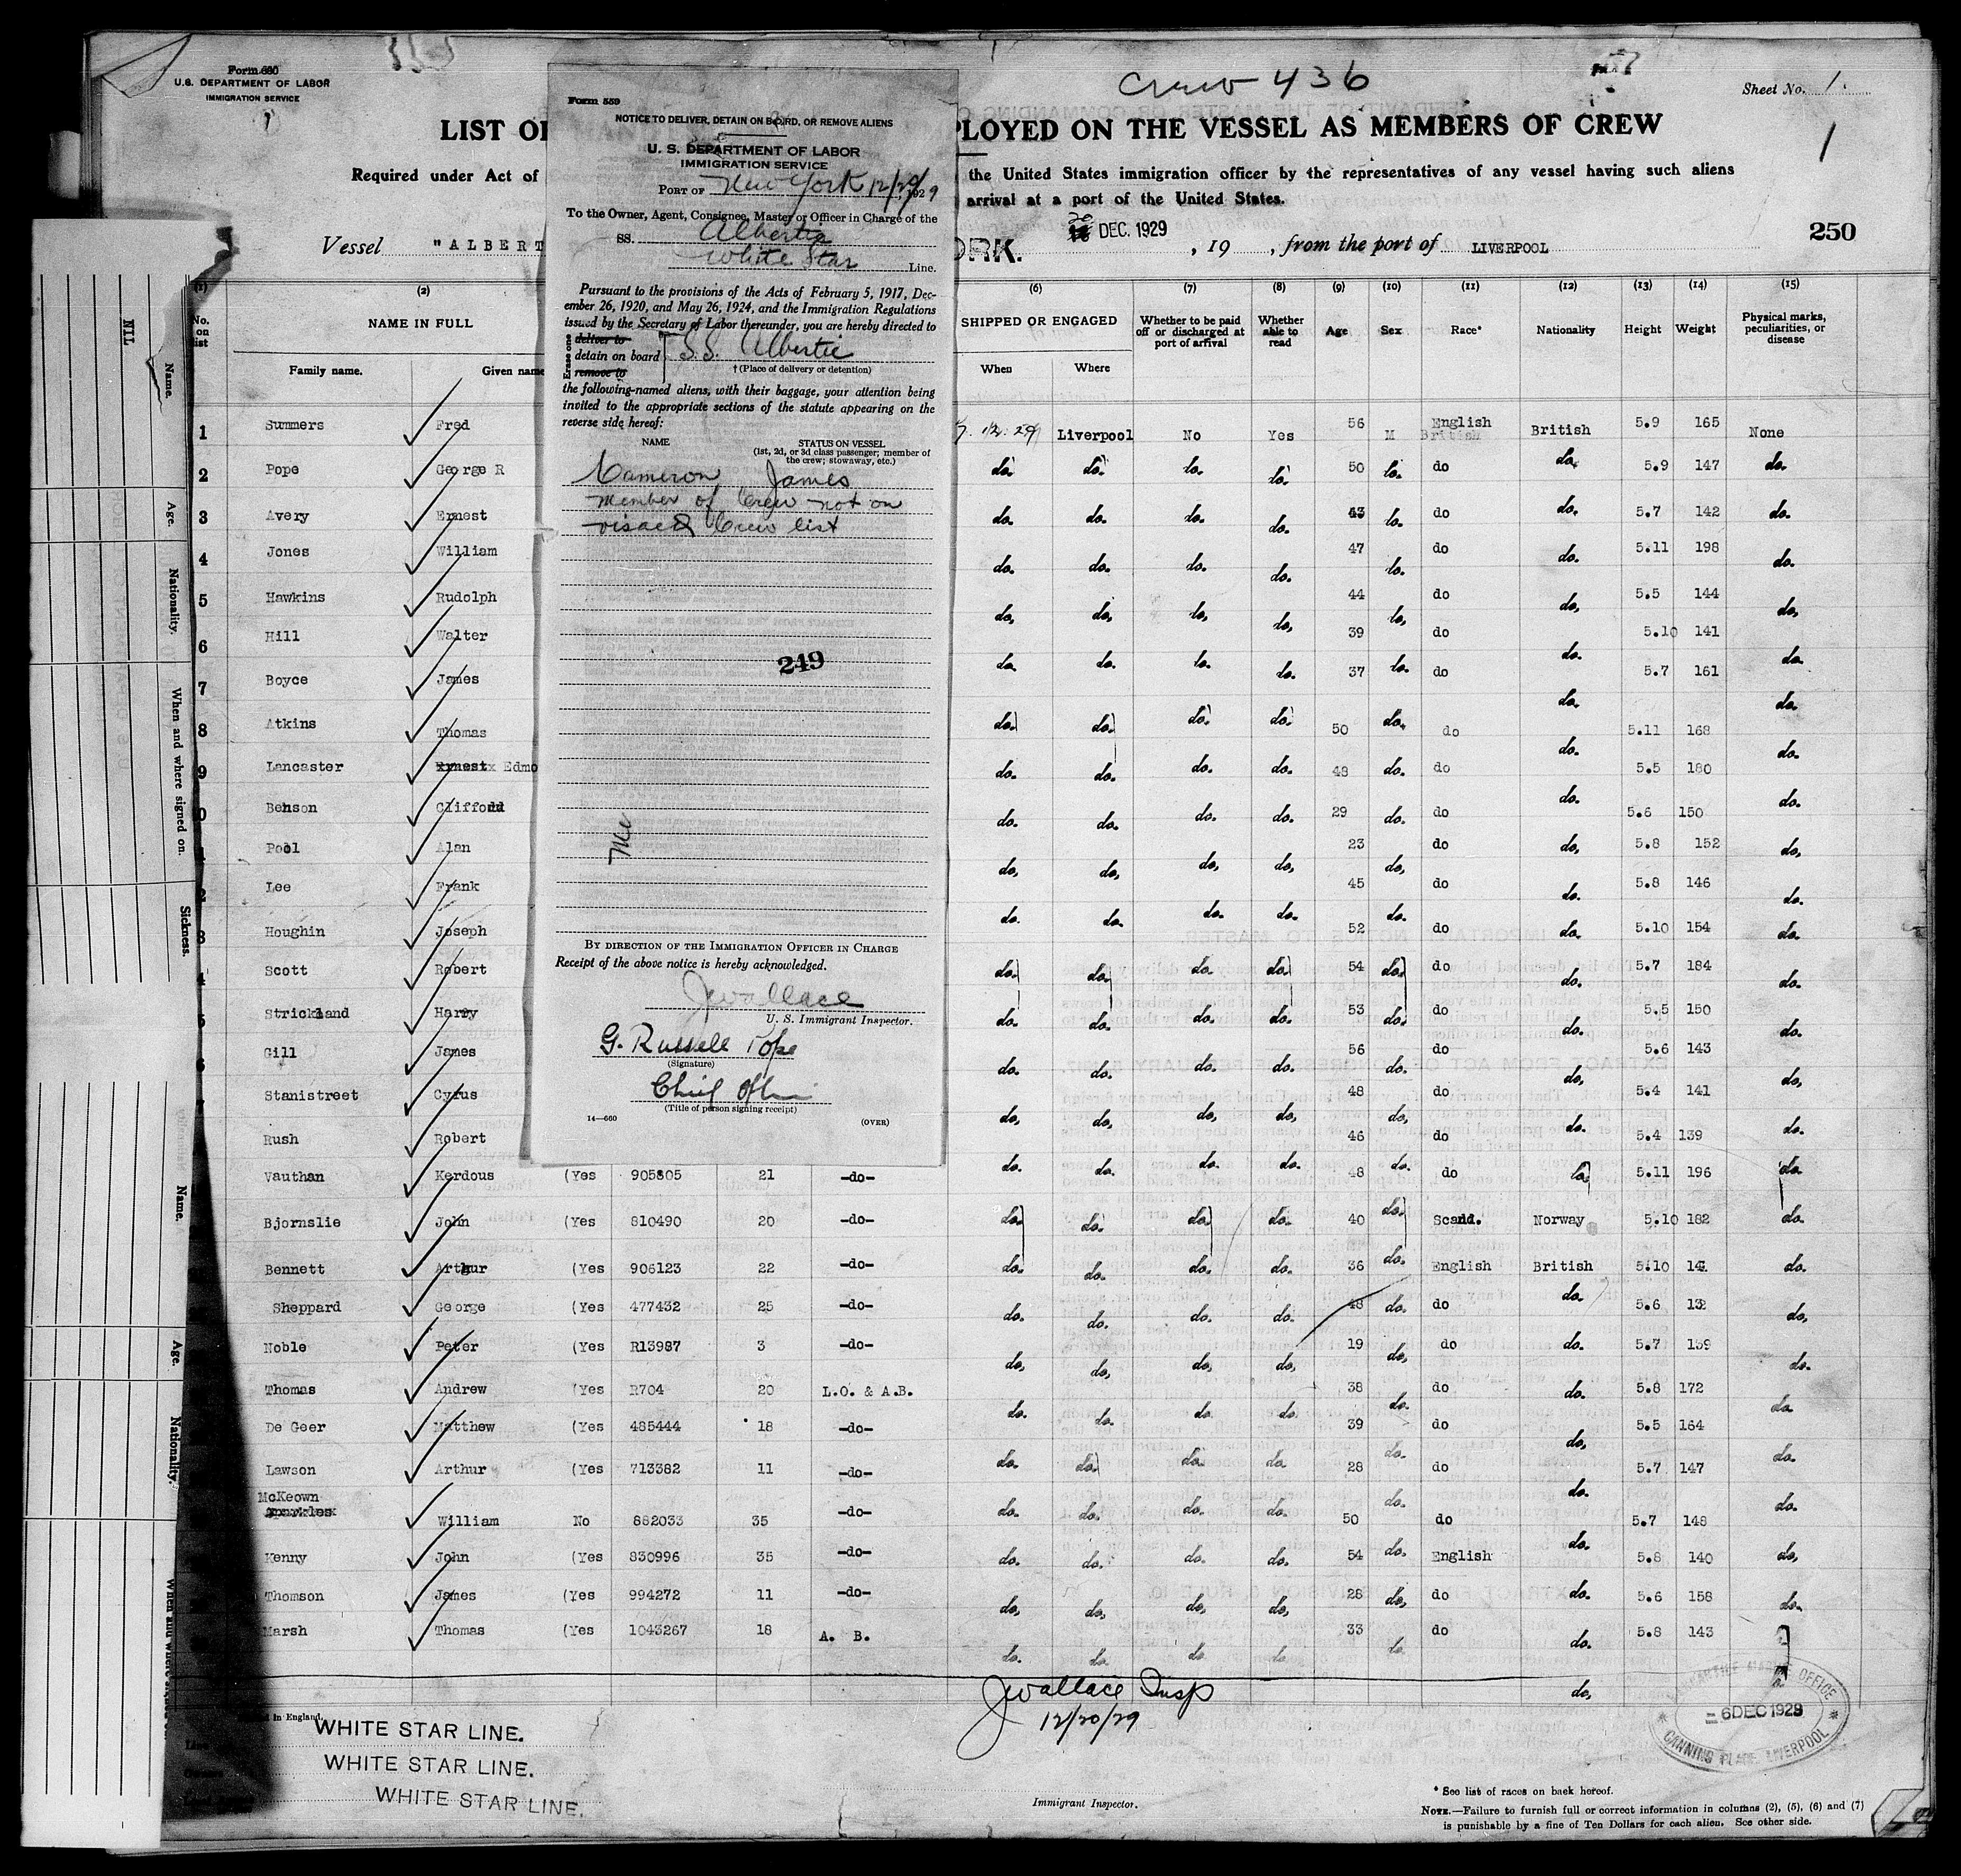 Form 680
U.S. DEPARTMENT OF LABOR
IMMIGRATION SERVICE
Crew 436
Sheet No. 1.
1
LIST OF
PLOYED ON THE VESSEL AS MEMBERS OF CREW
Required under Act of
the United States immigration officer by the representatives of any vessel having such aliens
arrival at a port of the United States.
Vessel "ALBERT
ORK.
20 DEC. 1929, 19 , from the port of LIVERPOOL
250
Form 559
NOTICE TO DELIVER, DETAIN ON BOARD, OR REMOVE ALIENS
U. S. DEPARTMENT OF LABOR
IMMIGRATION SERVICE
PORT OF New York 12/20/1929
To the Owner, Agent, Consignee, Master or Officer in Charge of the
SS. Albertic
White Star Line.
Pursuant to the provisions of the Acts of February 5, 1917, Dec-
ember 26, 1920, and May 26, 1924, and the Immigration Regulations
issued by the Secretary of Labor thereunder, you are hereby directed to
Erase one
deliver to
detain on board † S.S. Albertic
remove to
† (Place of delivery or detention)
the following-named aliens, with their baggage, your attention being
invited to the appropriate sections of the statute appearing on the
reverse side hereof:
NAME
STATUS ON VESSEL
(1st, 2d, or 3d class passenger; member of
the crew; stowaway, etc.)
Cameron James
Member of Crew not on
visaed Crew list
249
BY DIRECTION OF THE IMMIGRATION OFFICER IN CHARGE
Receipt of the above notice is hereby acknowledged.
J Wallace
U. S. Immigrant Inspector.
G. Russell Pope
(Signature)
Chief Offr
(Title of person signing receipt)
14—660
(OVER)
(1) (2) (6) (7) (8) (9) (10) (11) (12) (13) (14) (15)
No. on list
NAME IN FULL
Family name. Given name
SHIPPED OR ENGAGED
When Where
Whether to be paid off or discharged at port of arrival
Whether able to read
Age Sex Race* Nationality Height Weight
Physical marks, peculiarities, or disease
1 Summers Fred 7. 12. 29 Liverpool No Yes 56 M English British British 5.9 165 None
2 Pope George R do. do. do. do. 50 do. do do. 5.9 147 do.
3 Avery Ernest do. do. do. do. 43 do. do do. 5.7 142 do.
4 Jones William do. do. do. do. 47 do. do do. 5.11 198 do.
5 Hawkins Rudolph do. do. do. do. 44 do. do do. 5.5 144 do.
6 Hill Walter do. do. do. do. 39 do. do do. 5.10 141 do.
7 Boyce James do. do. do. do. 37 do. do do. 5.7 161 do.
8 Atkins Thomas do. do. do. do. 50 do. do do. 5.11 168 do.
9 Lancaster Ernest Edmo do. do. do. do. 48 do. do do. 5.5 180 do.
0 Benson Clifford do. do. do. do. 29 do. do do. 5.6 150 do.
Pool Alan do. do. do. do. 23 do. do do. 5.8 152 do.
2 Lee Frank do. do. do. do. 45 do. do do. 5.8 146 do.
3 Houghin Joseph 52 do do. 5.10 154 do.
4 Scott Robert do. do. do. do. 54 do. do do. 5.7 184 do.
5 Strickland Harry do. do. do. do. 53 do. do do. 5.5 150 do.
6 Gill James do. do. do. do. 56 do. do do. 5.6 143 do.
7 Stanistreet Cyrus do. do. do. do. 48 do. do do. 5.4 141 do.
Rush Robert do. do. do. do. 46 do. do 5.4 139 do.
Vauthan Kerdous (Yes 905805 21 -do- 48 do do. 5.11 196
Bjornslie John (Yes 810490 20 -do- do. do. do. do. 40 do. Scand. Norway 5.10 182 do.
Bennett Arthur (Yes 906123 22 -do- do. do. do. do. 36 do. English British 5.10 do.
Sheppard George (Yes 477432 25 -do- do. do. do. do. 48 do. do do. 5.6 132 do.
Noble Peter (Yes R13987 3 -do- do. do. do. do. 19 do. do do. 5.7 139 do.
Thomas Andrew (Yes R704 20 L.O. & A.B. do. do. do. do. 38 do. do do. 5.8 172 do.
De Geer Matthew (Yes 485444 18 -do- 39 do. do do. 5.5 164 do.
Lawson Arthur (Yes 713382 11 -do- do. do. do. do. 28 do. do do. 5.7 147
McKeown William No 882033 35 -do- do. do. do. do. 50 do do. 5.7 148 do.
Kenny John (Yes 830996 35 -do- do. do. do. do. 54 do. English 5.8 140 do.
Thomson James (Yes 994272 11 -do- do. do. do. do. 28 do. do do. 5.6 158 do.
Marsh Thomas (Yes 1043267 18 A. B. do. do. do. do. 33 do. do do. 5.8 143
do.
J Wallace Insp
12/20/29
d in England.
WHITE STAR LINE.
WHITE STAR LINE.
WHITE STAR LINE.
Immigrant Inspector.
MARINE OFFICE
6 DEC 1929
CANNING PLACE LIVERPOOL
* See list of races on back hereof.
NOTE.—Failure to furnish full or correct information in columns (2), (5), (6) and (7)
is punishable by a fine of Ten Dollars for each alien. See other side.
NIL
Name.
Age.
Nationality.
When and where signed on.
Sickness.
Name.
Age.
Nationality.
When and where signed on.